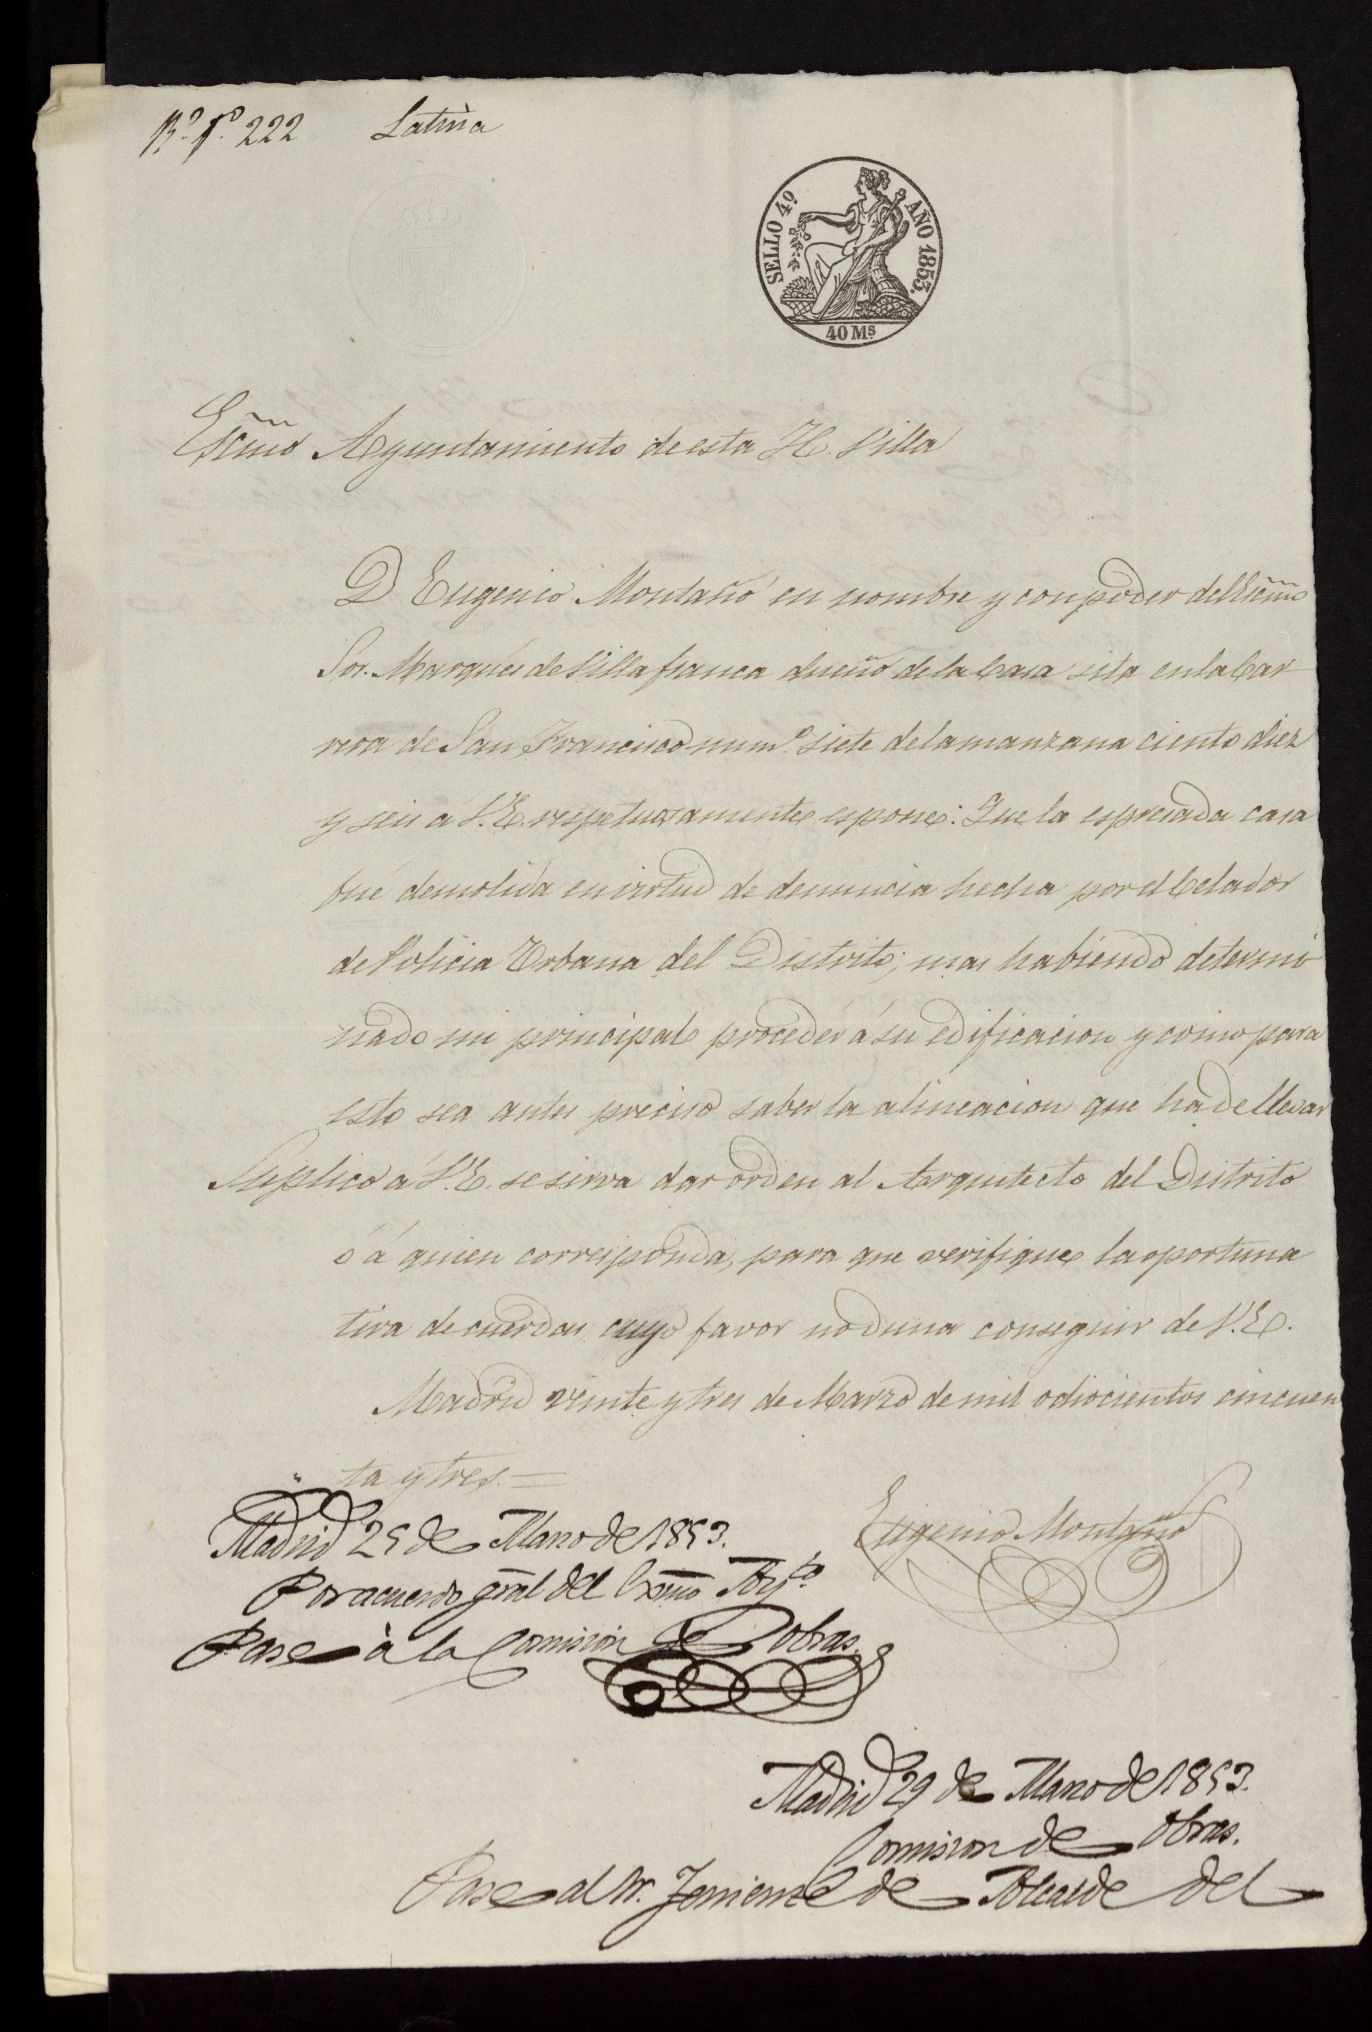 R.º 1.º 222 Latina
SELLO 4º AÑO 1853.
40 Ms
Escmo Ayuntamiento de esta H. Villa
D Eugenio Montaño en nombre y con poder del Escmo
Sor. Marqués de Villafranca dueño de la Casa sita en la Car-
rera de San Francisco num.º siete de la manzana ciento diez
y seis á V.E. respetuosamente espone: Que la espresada casa
fué demolida en virtud de denuncia hecha por el Celador
de Policia Urbana del Distrito; mas habiendo determi
nado mi principal proceder á su edificacion y como para
esto sea antes preciso saber la alineacion que ha de llevar
Suplico á V.E. se sirva dar orden al Arquitecto del Distrito
ó á quien corresponda, para que verifique la oportuna
tira de cuerdas, cuyo favor no duda conseguir de V.E.
Madrid veinte y tres de Marzo de mil ochocientos cincuen
ta y tres.=
Eugenio Montaño
Madrid 25 de Marzo de 1853.
Por acuerdo gral del Exmo Ayto.
Pase à la Comision de obras.
Madrid 29 de Marzo de 1853.
Comision de Obras.
Pase al Sr. Teniente de Alcalde del